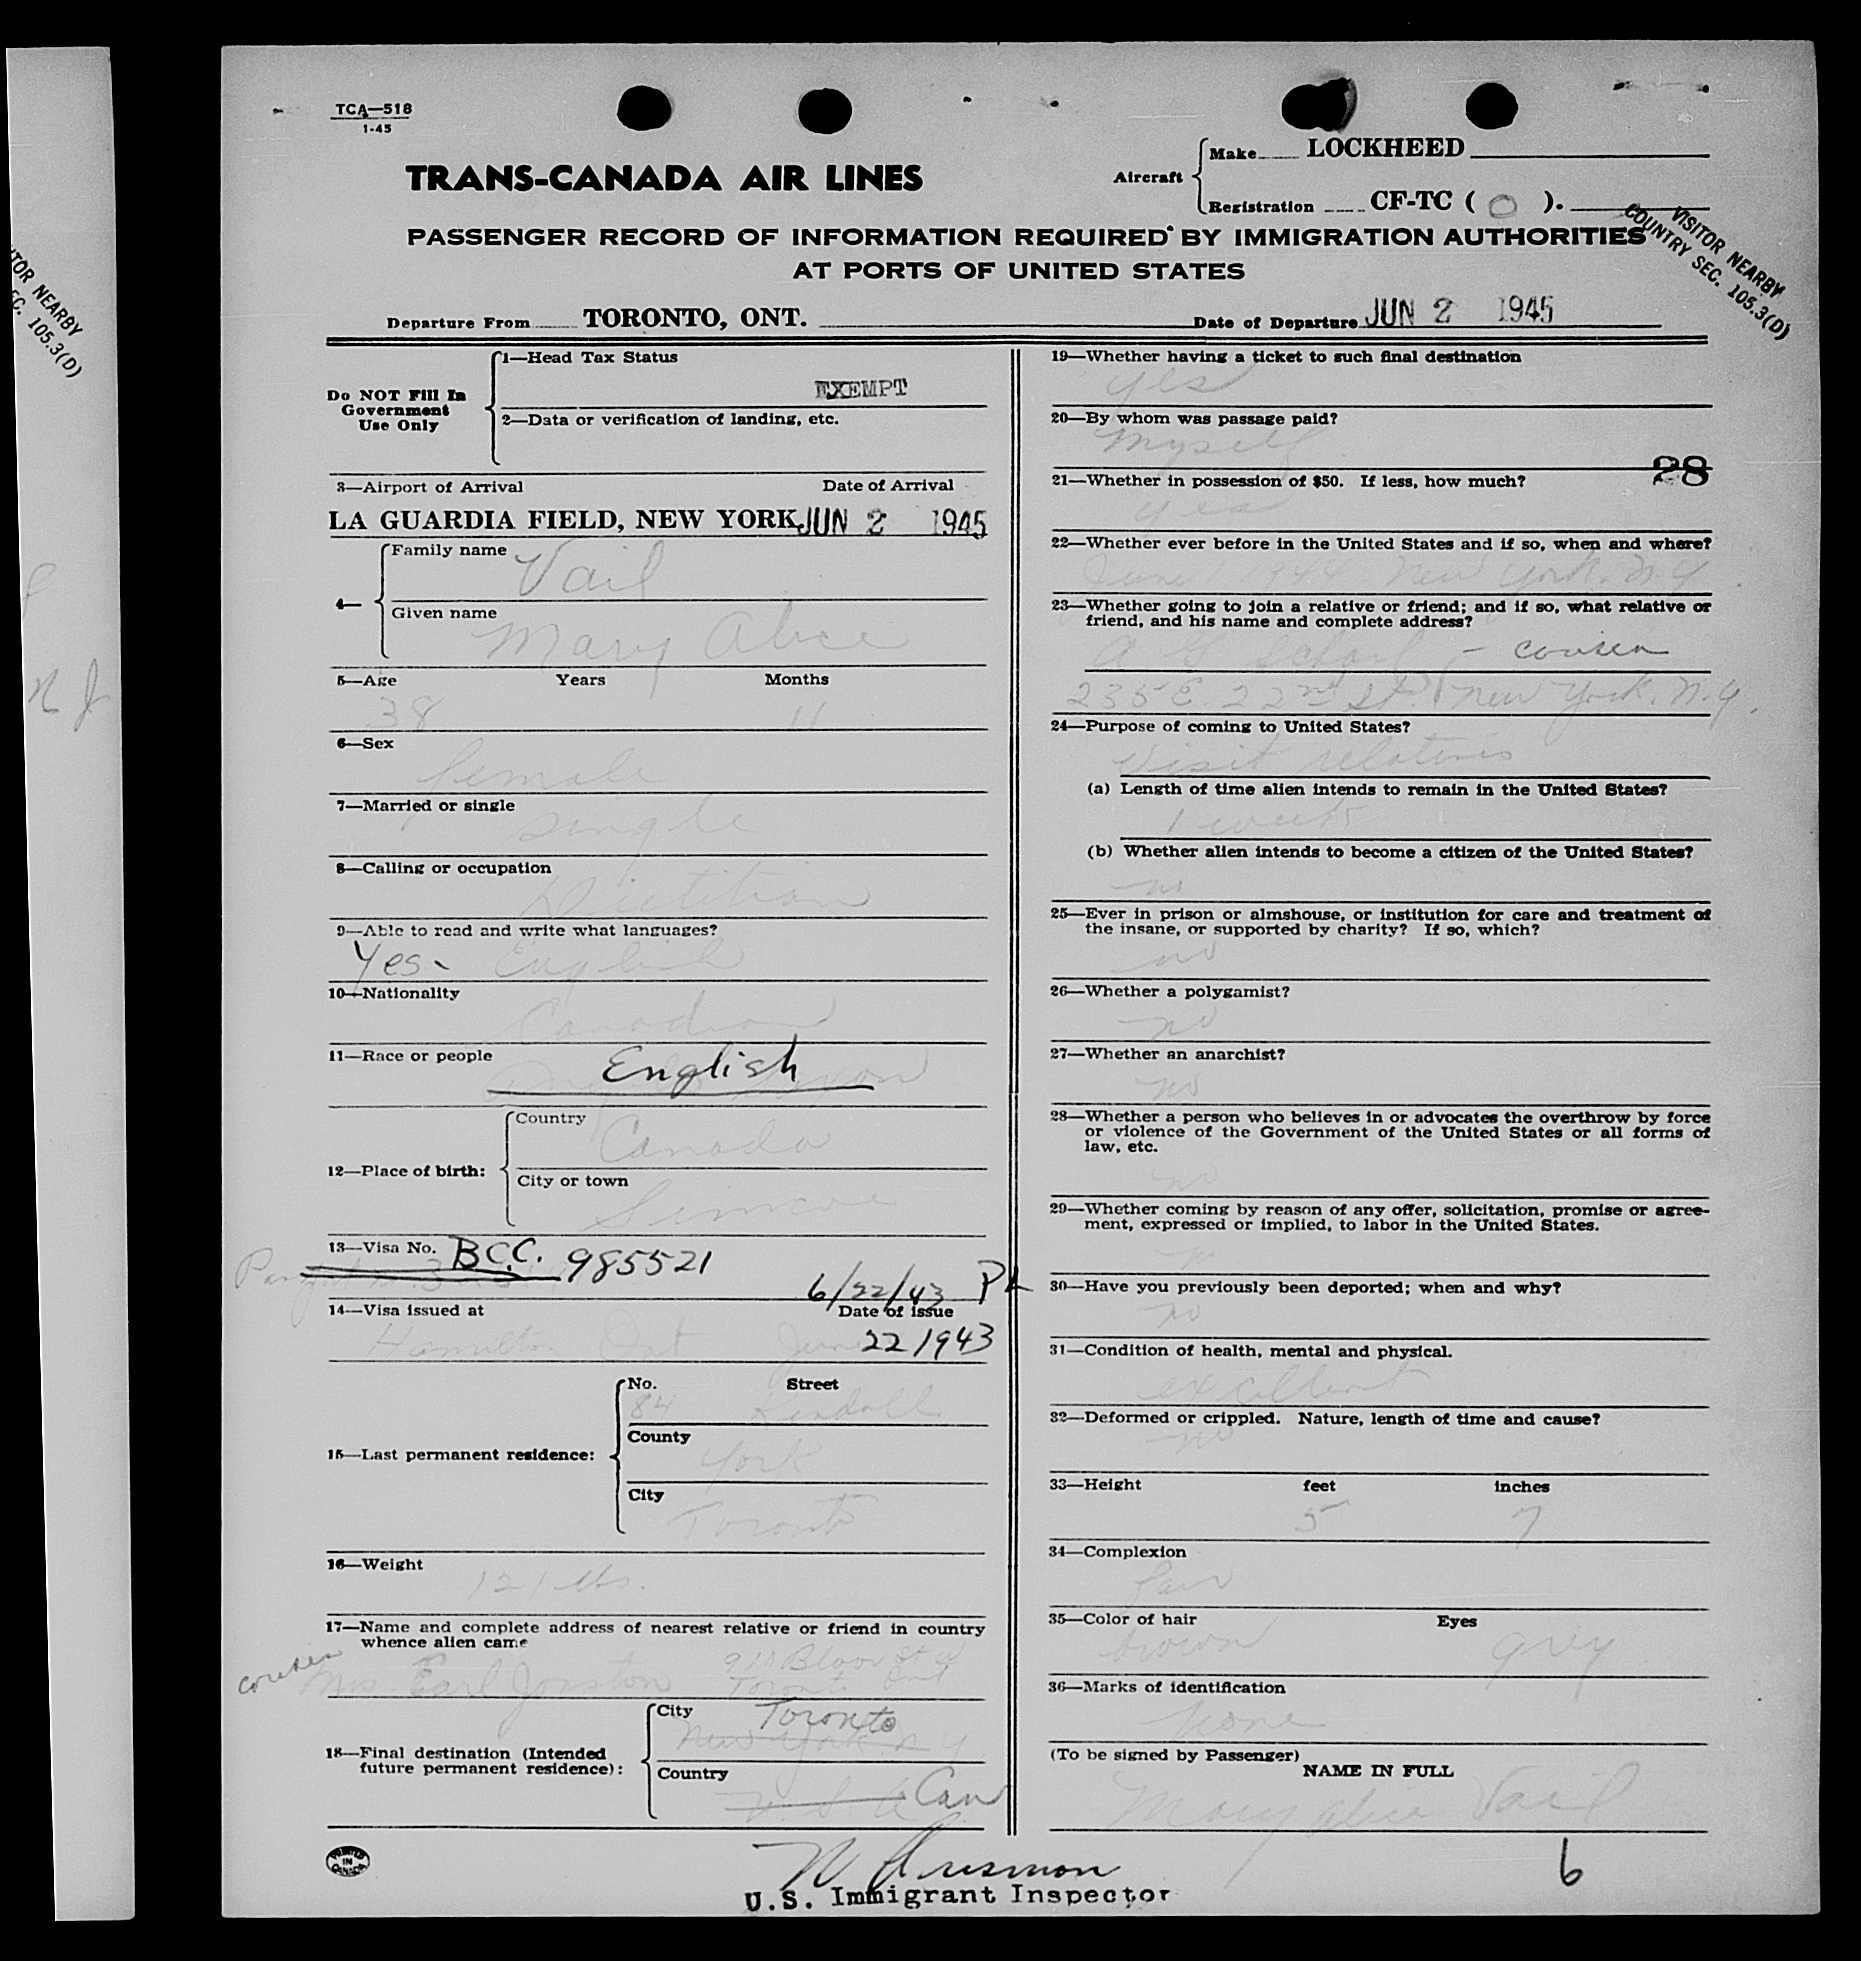 TCA—518
1-45
TRANS-CANADA AIR LINES
Aircraft
Make LOCKHEED
Registration CF-TC ( O ).
PASSENGER RECORD OF INFORMATION REQUIRED BY IMMIGRATION AUTHORITIES
AT PORTS OF UNITED STATES
VISITOR NEARBY
COUNTRY SEC. 105.3(D)
Departure From TORONTO, ONT.
Date of Departure JUN 2 1945
Do NOT Fill In
Government
Use Only
1—Head Tax Status
EXEMPT
2—Data or verification of landing, etc.
3—Airport of Arrival Date of Arrival
LA GUARDIA FIELD, NEW YORK JUN 2 1945
4—
Family name Vail
Given name
Mary Alice
5—Age Years Months
38 11
6—Sex
female
7—Married or single
single
8—Calling or occupation
Dietitian
9—Able to read and write what languages?
Yes - English
10—Nationality
Canadian
11—Race or people English
12—Place of birth:
Country
Canada
City or town
Simcoe
13—Visa No. B.C.C. 985521
6/22/43
14—Visa issued at Date of issue
Hamilton Ont June 22 1943
15—Last permanent residence:
No. Street
84 Kendall
County
York
City
Toronto
16—Weight
121 lbs.
17—Name and complete address of nearest relative or friend in country
whence alien came
cousin Mrs. Earl
Bloor St W
Toronto Ont
18—Final destination (Intended
future permanent residence):
City Toronto
New York N Y
Country
U. S. A. Can
PRINTED
IN
CANADA
19—Whether having a ticket to such final destination
yes
20—By whom was passage paid?
Myself
28
21—Whether in possession of $50. If less, how much?
yes
22—Whether ever before in the United States and if so, when and where?
June 1944 New York. N.Y.
23—Whether going to join a relative or friend; and if so, what relative or
friend, and his name and complete address?
A G - cousin
235 E. 22nd St. New York. N.Y.
24—Purpose of coming to United States?
Visit relatives
(a) Length of time alien intends to remain in the United States?
1 week
(b) Whether alien intends to become a citizen of the United States?
no
25—Ever in prison or almshouse, or institution for care and treatment of
the insane, or supported by charity? If so, which?
no
26—Whether a polygamist?
no
27—Whether an anarchist?
no
28—Whether a person who believes in or advocates the overthrow by force
or violence of the Government of the United States or all forms of
law, etc.
no
29—Whether coming by reason of any offer, solicitation, promise or agree-
ment, expressed or implied, to labor in the United States.
no
30—Have you previously been deported; when and why?
no
31—Condition of health, mental and physical.
excellent
32—Deformed or crippled. Nature, length of time and cause?
no
33—Height feet inches
5 7
34—Complexion
fair
35—Color of hair Eyes
brown grey
36—Marks of identification
none
(To be signed by Passenger)
NAME IN FULL
Mary Alice Vail
6
U.S. Immigrant Inspector